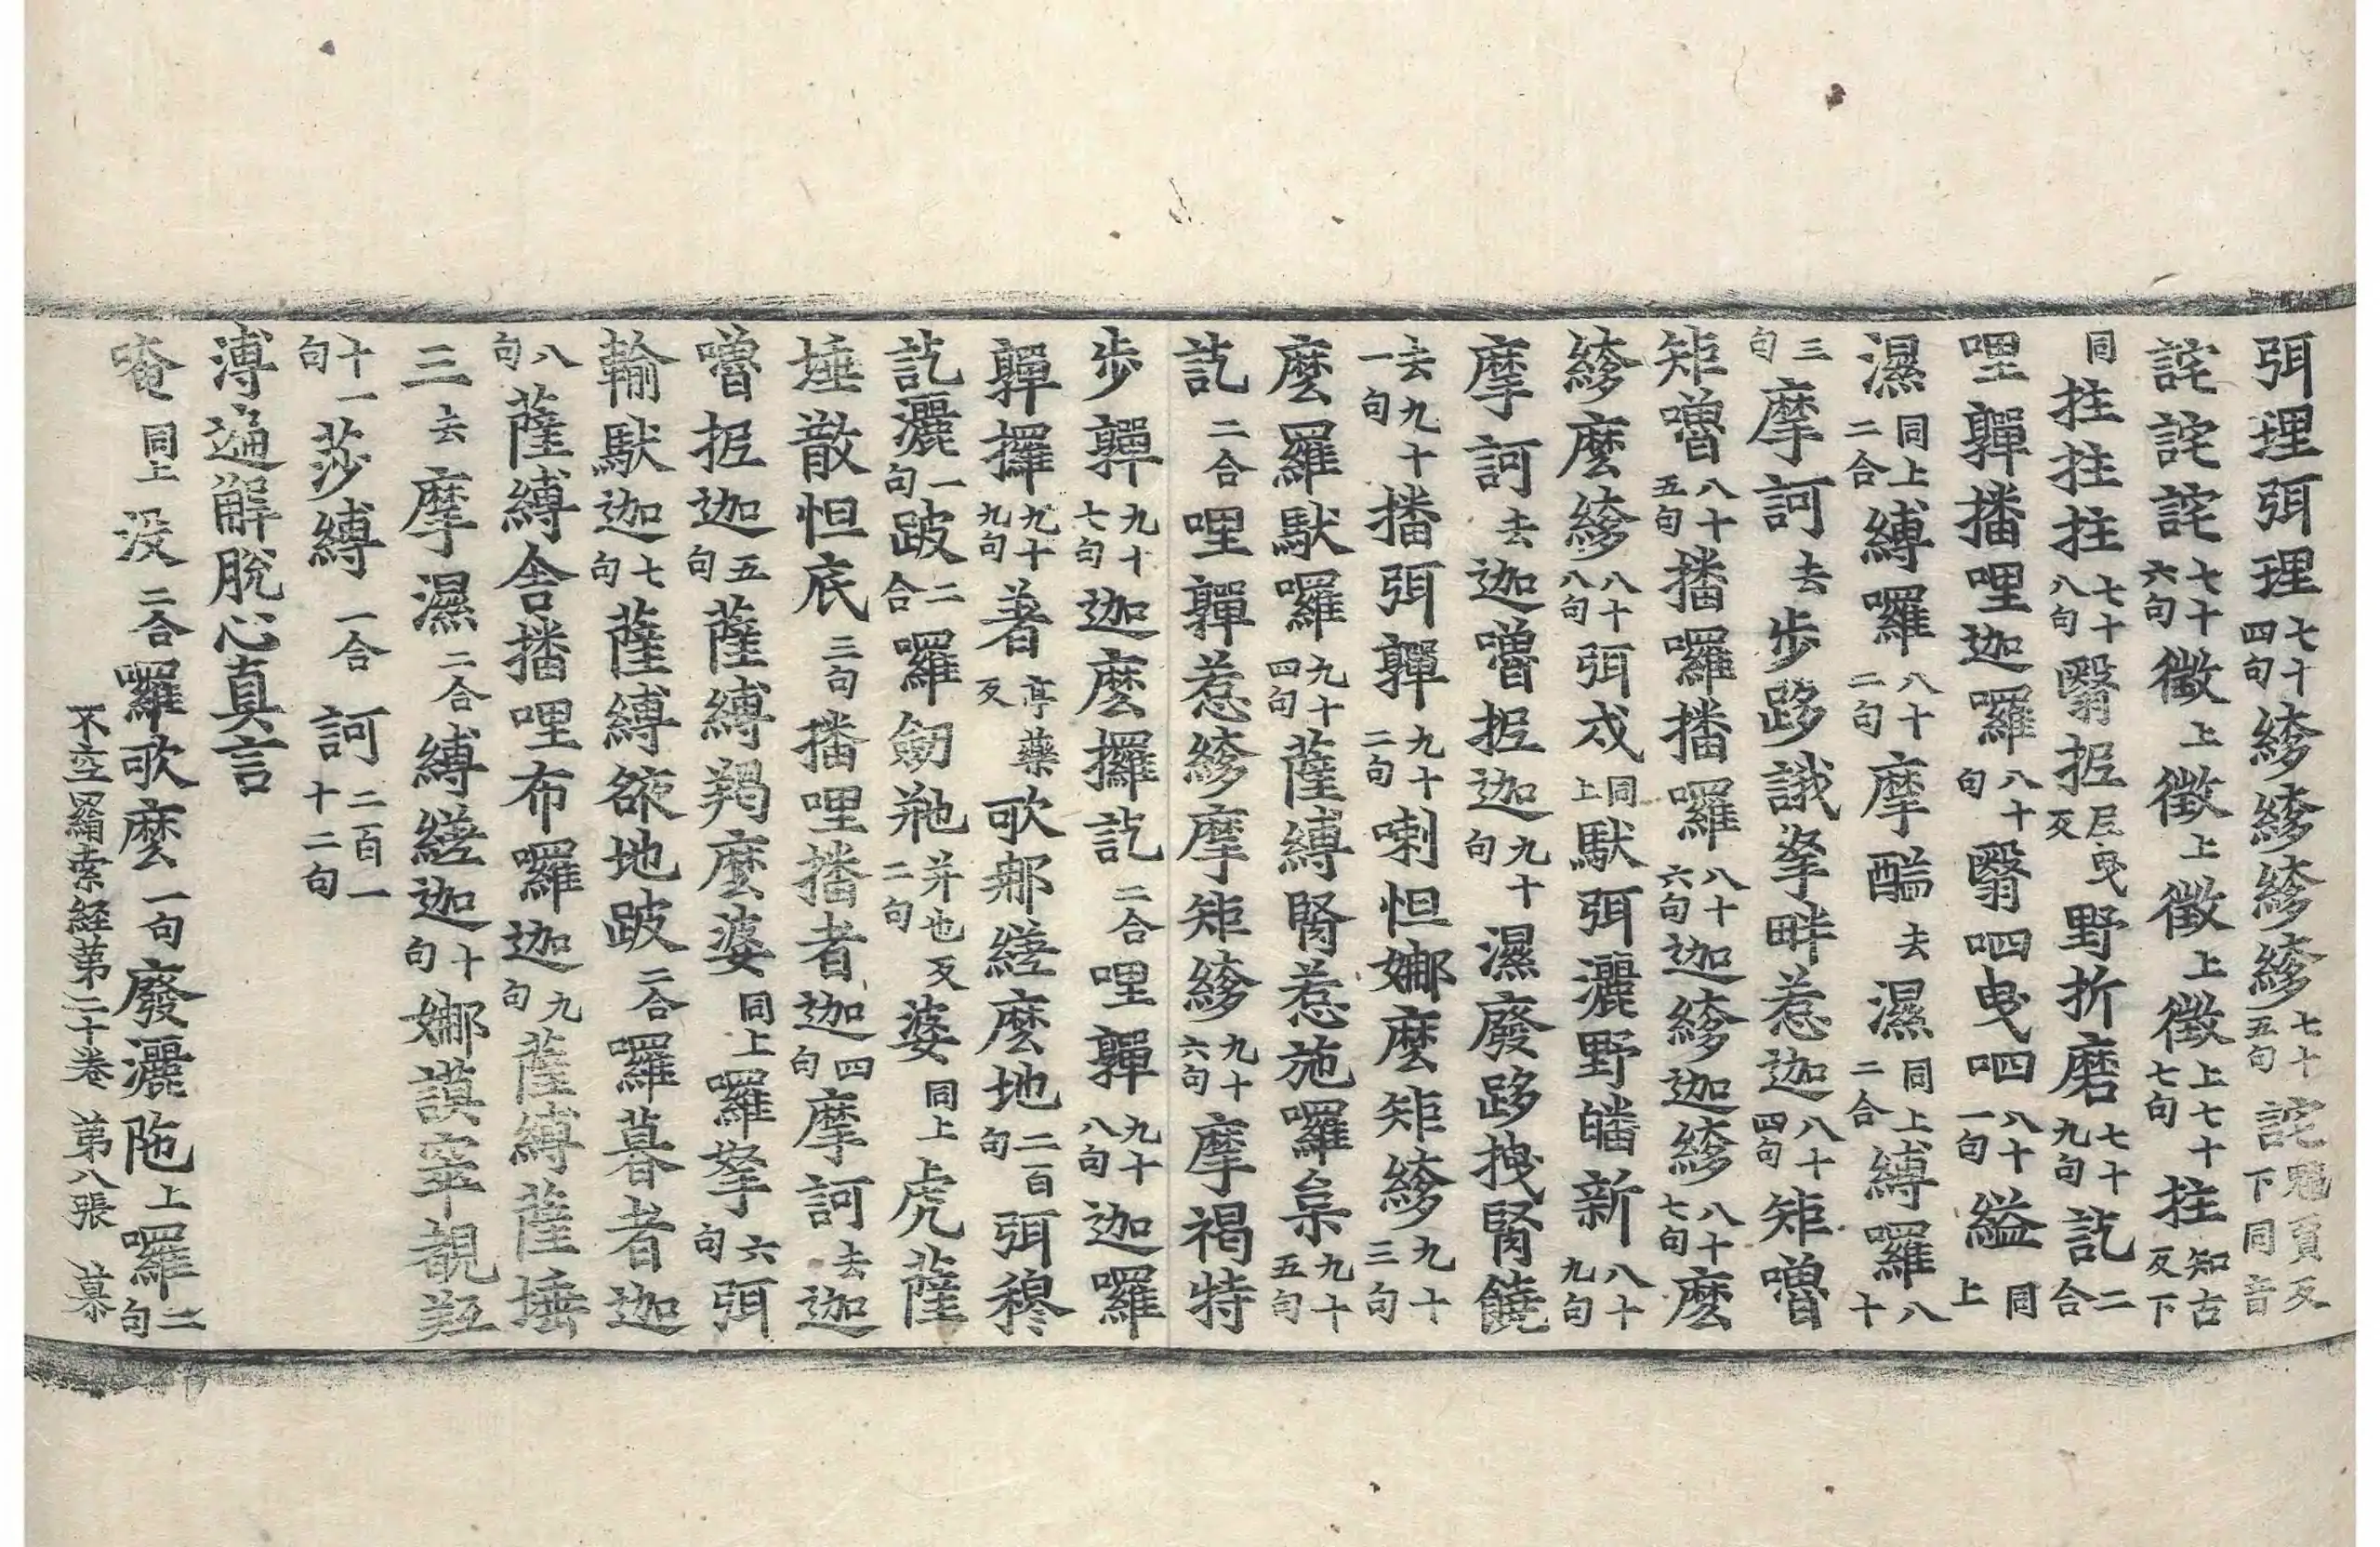 弭理弭理七十四句縿縿縿縿七十五句詫魑賈反下同音
詫詫詫七十六句徵上徵上徵上徵上七十七句拄知古反下
同拄拄拄七十八句翳抳尼曳反野折磨七十九句訖二合
哩嚲播哩迦囉八十句翳呬曳呬八十一句縊同上
濕同上二合縛囉八十二句摩醯去濕同上二合縛囉八十
三句摩訶去步跢誐拏畔惹迦八十四句矩嚕
矩嚕八十五句播囉播囉八十六句迦縿迦縿八十七句麼
縿麼縿八十八句弭戍同上馱弭灑野皤新八十九句
摩訶去迦嚕抳迦九十句濕廢跢拽腎饒
去九十一句播弭嚲九十二句喇怛娜麼矩縿九十三句
麼羅馱囉九十四句薩縛腎惹施囉枲九十五句
訖二合哩嚲惹縿摩矩縿九十六句摩褐特
步嚲九十七句迦麼攞訖二合哩嚲九十八句迦囉
嚲攞九十九句著亭藥反歌那縒麼地二百句弭穆
訖灑一句跛二合囉劒𣑯并也反二句婆同上虎薩
埵散怛底三句播哩播者迦四句摩訶去迦
嚕抳迦五句薩縛羯麼婆同上囉拏六句弭
輸馱迦七句薩縛弶地跛二合囉暮者迦
八句薩縛舍播哩布囉迦九句薩縛薩埵
三去摩濕二合縛縒迦十句娜謨窣覩㹅
十一句莎縛一合訶二百一十二句
溥遍解脫心真言
唵同上没二合囉歌麼一句廢灑陁上囉二句
不空羂索経第二十卷　第八張　慕